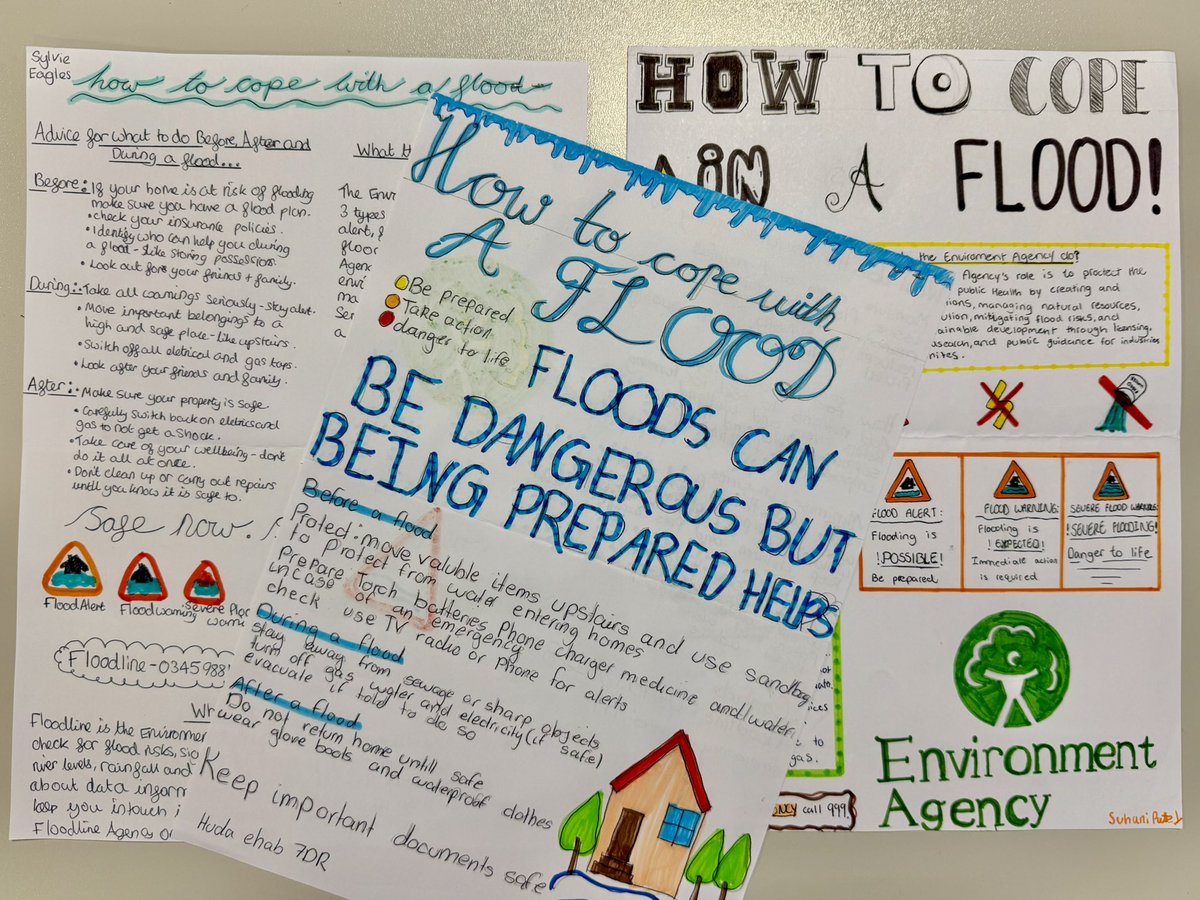 Sylvie
Eagles
how to cope with a flood
Advice for what to do Before, After and
During a flood...
Before: If your home is at risk of flooding
make sure you have a flood plan.
• check your insurance policies.
• Identify who can help you during
a flood - like storing possession.
• Look out for your friends + family.
During: Take all warnings seriously - stay alert.
• Move important belongings to a
high and safe place - like upstairs.
• Switch off all eletrical and gas taps.
• Look after your friends and family.
After: • Make sure your property is safe
• Carefully switch back on eletrics and
gas to not get a shock.
• Take care of your wellbeing - don't
do it all at once.
• Don't clean up or carry out repairs
until you know it is safe to.
Safe now.
Flood Alert
Flood warning
severe
Floodline - 0345 988
Floodline is the
check for flood risks,
river levels, rainfall and
about data
keep you intouch
Floodline Agency or
What
The
3 types
alert,
floor
How to cope with
A FLOOD
Be prepared
Take action
danger to life
FLOODS CAN
BE DANGEROUS BUT
BEING PREPARED HELPS
Before a flood
Protect: move valuble items upstairs and use sandbags
to Protect from water entering homes
Prepare: Torch batteries phone charger medicine and water
in case of an emergency
check use TV radio or phone for alerts
During a flood
stay away from sewage or sharp objects
turn off gas water and electricity (if safe)
evacuate if told to do so
After a flood
Do not return home untill safe
wear glove boots and waterproof clothes
Keep important documents safe
Huda ehab 7DR
HOW TO COPE
IN A FLOOD!
the Enviroment Agency do?
Agency's role is to protect the
public Health by creating and
managing natural resources,
mitigating flood risks, and
development through licensing,
and public guidance for industries
FLOOD ALERT:
Flooding is
!POSSIBLE!
Be prepared
FLOOD WARNING:
Flooding is
!EXPECTED!
Immediate action
is required
SEVERE FLOOD WARNING:
!SEVERE FLOODING!
Danger to life
gas.
call 999
Environment
Agency
Suhani Patel